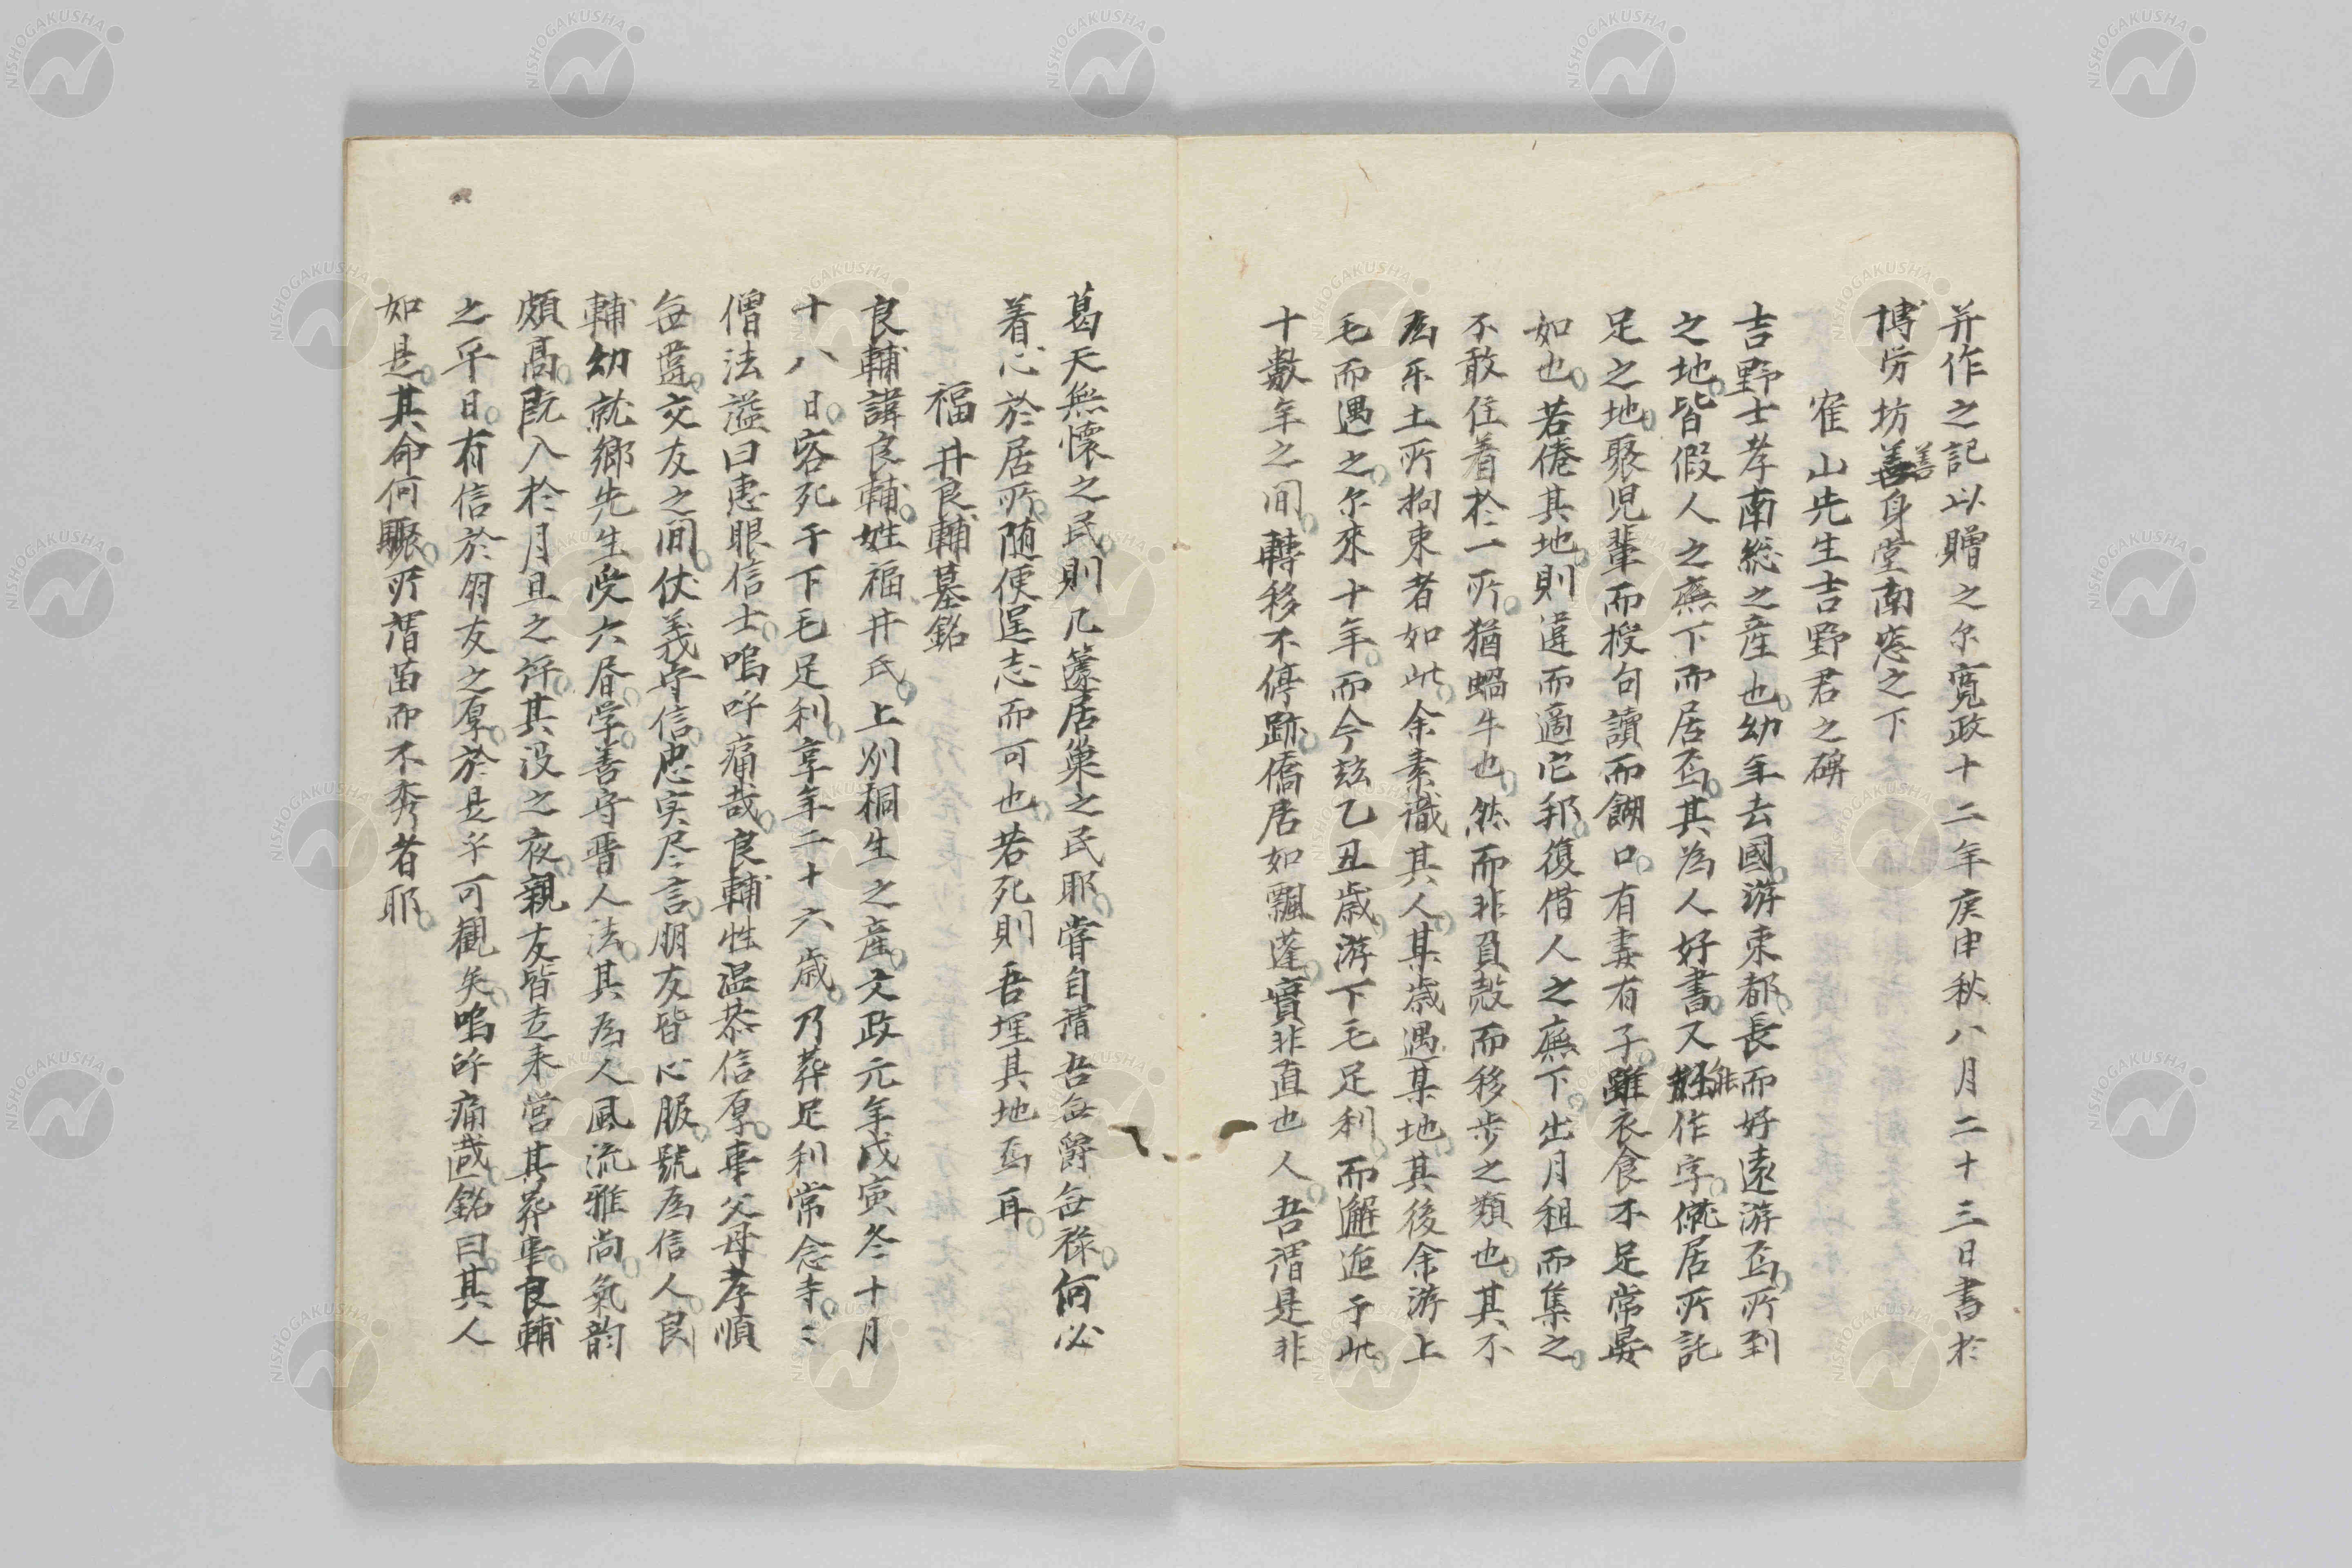 并作之記以贈之尓寛政十二年庚申秋八月二十三日書於
博労坊善身堂南窓之下
寉山先生吉野君之碑
吉野士孝南総之産也幼年去國游東都長而好遠游焉所到
之地皆假人之廡下而居焉其為人好書又能作字僦居所託
足之地聚児輩而授句讀而餬口有妻有子雖衣食不足常晏
如也若倦其地則違而適它邦復借人之廡下出月租而集之
不敢住着於一所猶蝸牛也然而非負殻而移歩之類也其不
為乐土所拘束者如此余素識其人某歳遇某地其後余游上
毛而遇之尓來十年而今玆乙丑歳游下毛足利而邂逅于此
十數年之间轉移不停跡僑居如飄蓬實非直也人吾謂是非
葛天無懐之民則几籧居巣之民耶嘗自謂吾無爵無祿何必
着心於居所随便逞志而可也若死則吾埋其地焉耳
福井良輔墓銘
良輔諱良輔姓福井氏上州桐生之産文政元年戊寅冬十月
十八日客死于下毛足利享年二十六歳乃葬足利常念寺ミ
僧法謚曰恵眼信士嗚呼痛哉良輔性温恭信厚事父母孝順
無違交友之间仗義守信忠実尽言朋友皆心服號為信人良
輔幼就郷先生受六昏学善守晋人法其為人風流雅尚氣韵
頗高既入於月旦之評其没之夜親友皆走来営其葬事良輔
之平日有信於朋友之厚於是乎可観矣嗚呼痛哉銘曰其人
如是其命何驟所謂苗而不秀者耶
NISHOGAKUSHA